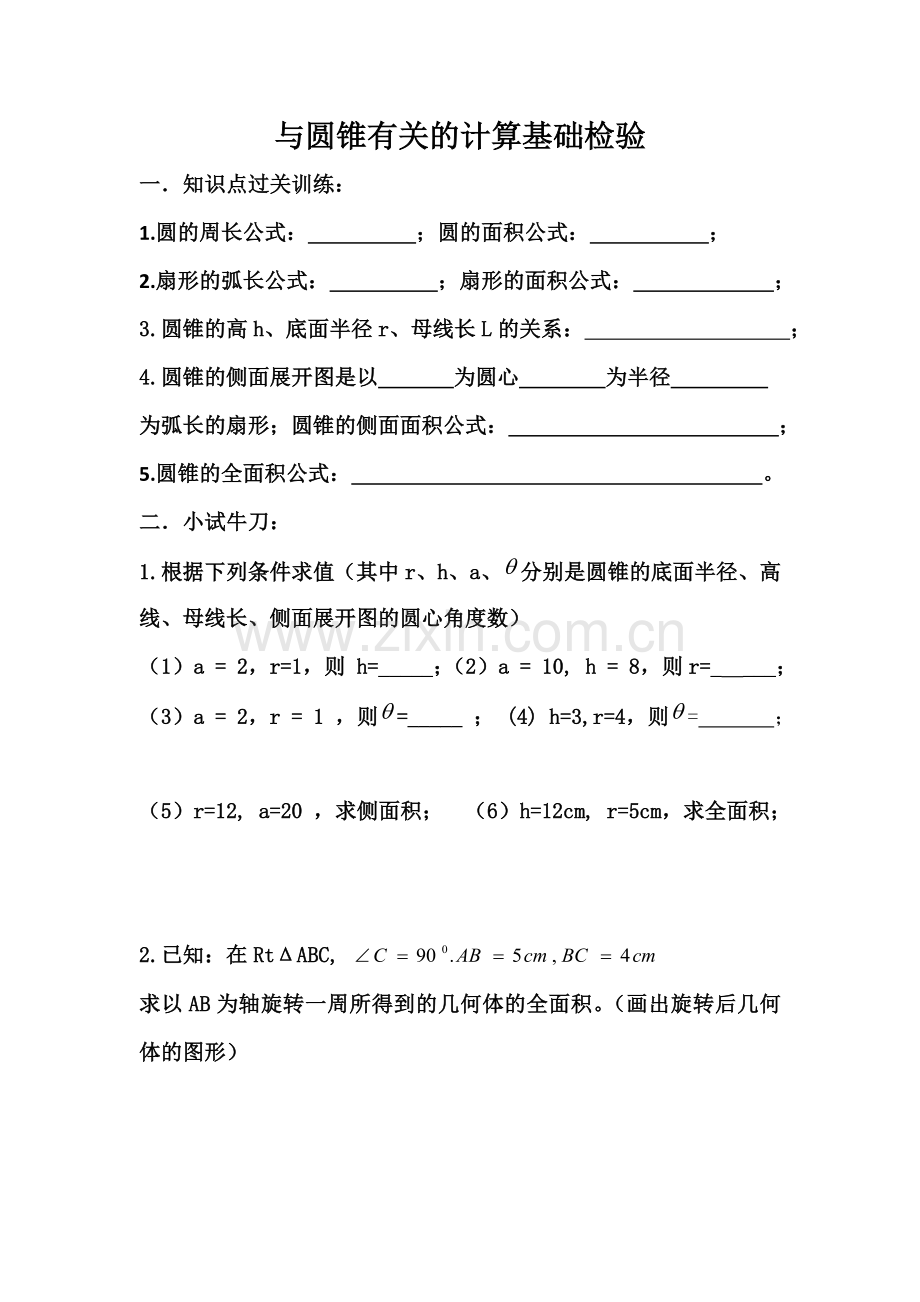 与圆锥有关的计算基础检验
一．知识点过关训练：
1.圆的周长公式：__________；圆的面积公式：___________；
2.扇形的弧长公式：__________；扇形的面积公式：_____________；
3.圆锥的高h、底面半径r、母线长L的关系：___________________；
4.圆锥的侧面展开图是以_______为圆心________为半径_________
为弧长的扇形；圆锥的侧面面积公式：_________________________；
5.圆锥的全面积公式：______________________________________。
二．小试牛刀：
1.根据下列条件求值（其中r、h、a、θ分别是圆锥的底面半径、高
线、母线长、侧面展开图的圆心角度数）
www.zixin.com.cn
（1）a = 2，r=1，则 h=_____；（2）a = 10, h = 8，则r=______；
（3）a = 2，r = 1 ，则θ=_____ ； (4) h=3,r=4，则θ=_______；
（5）r=12, a=20 ，求侧面积； （6）h=12cm, r=5cm，求全面积；
2.已知：在RtΔABC, ∠C = 90⁰.AB = 5cm,BC = 4cm
求以AB为轴旋转一周所得到的几何体的全面积。（画出旋转后几何
体的图形）